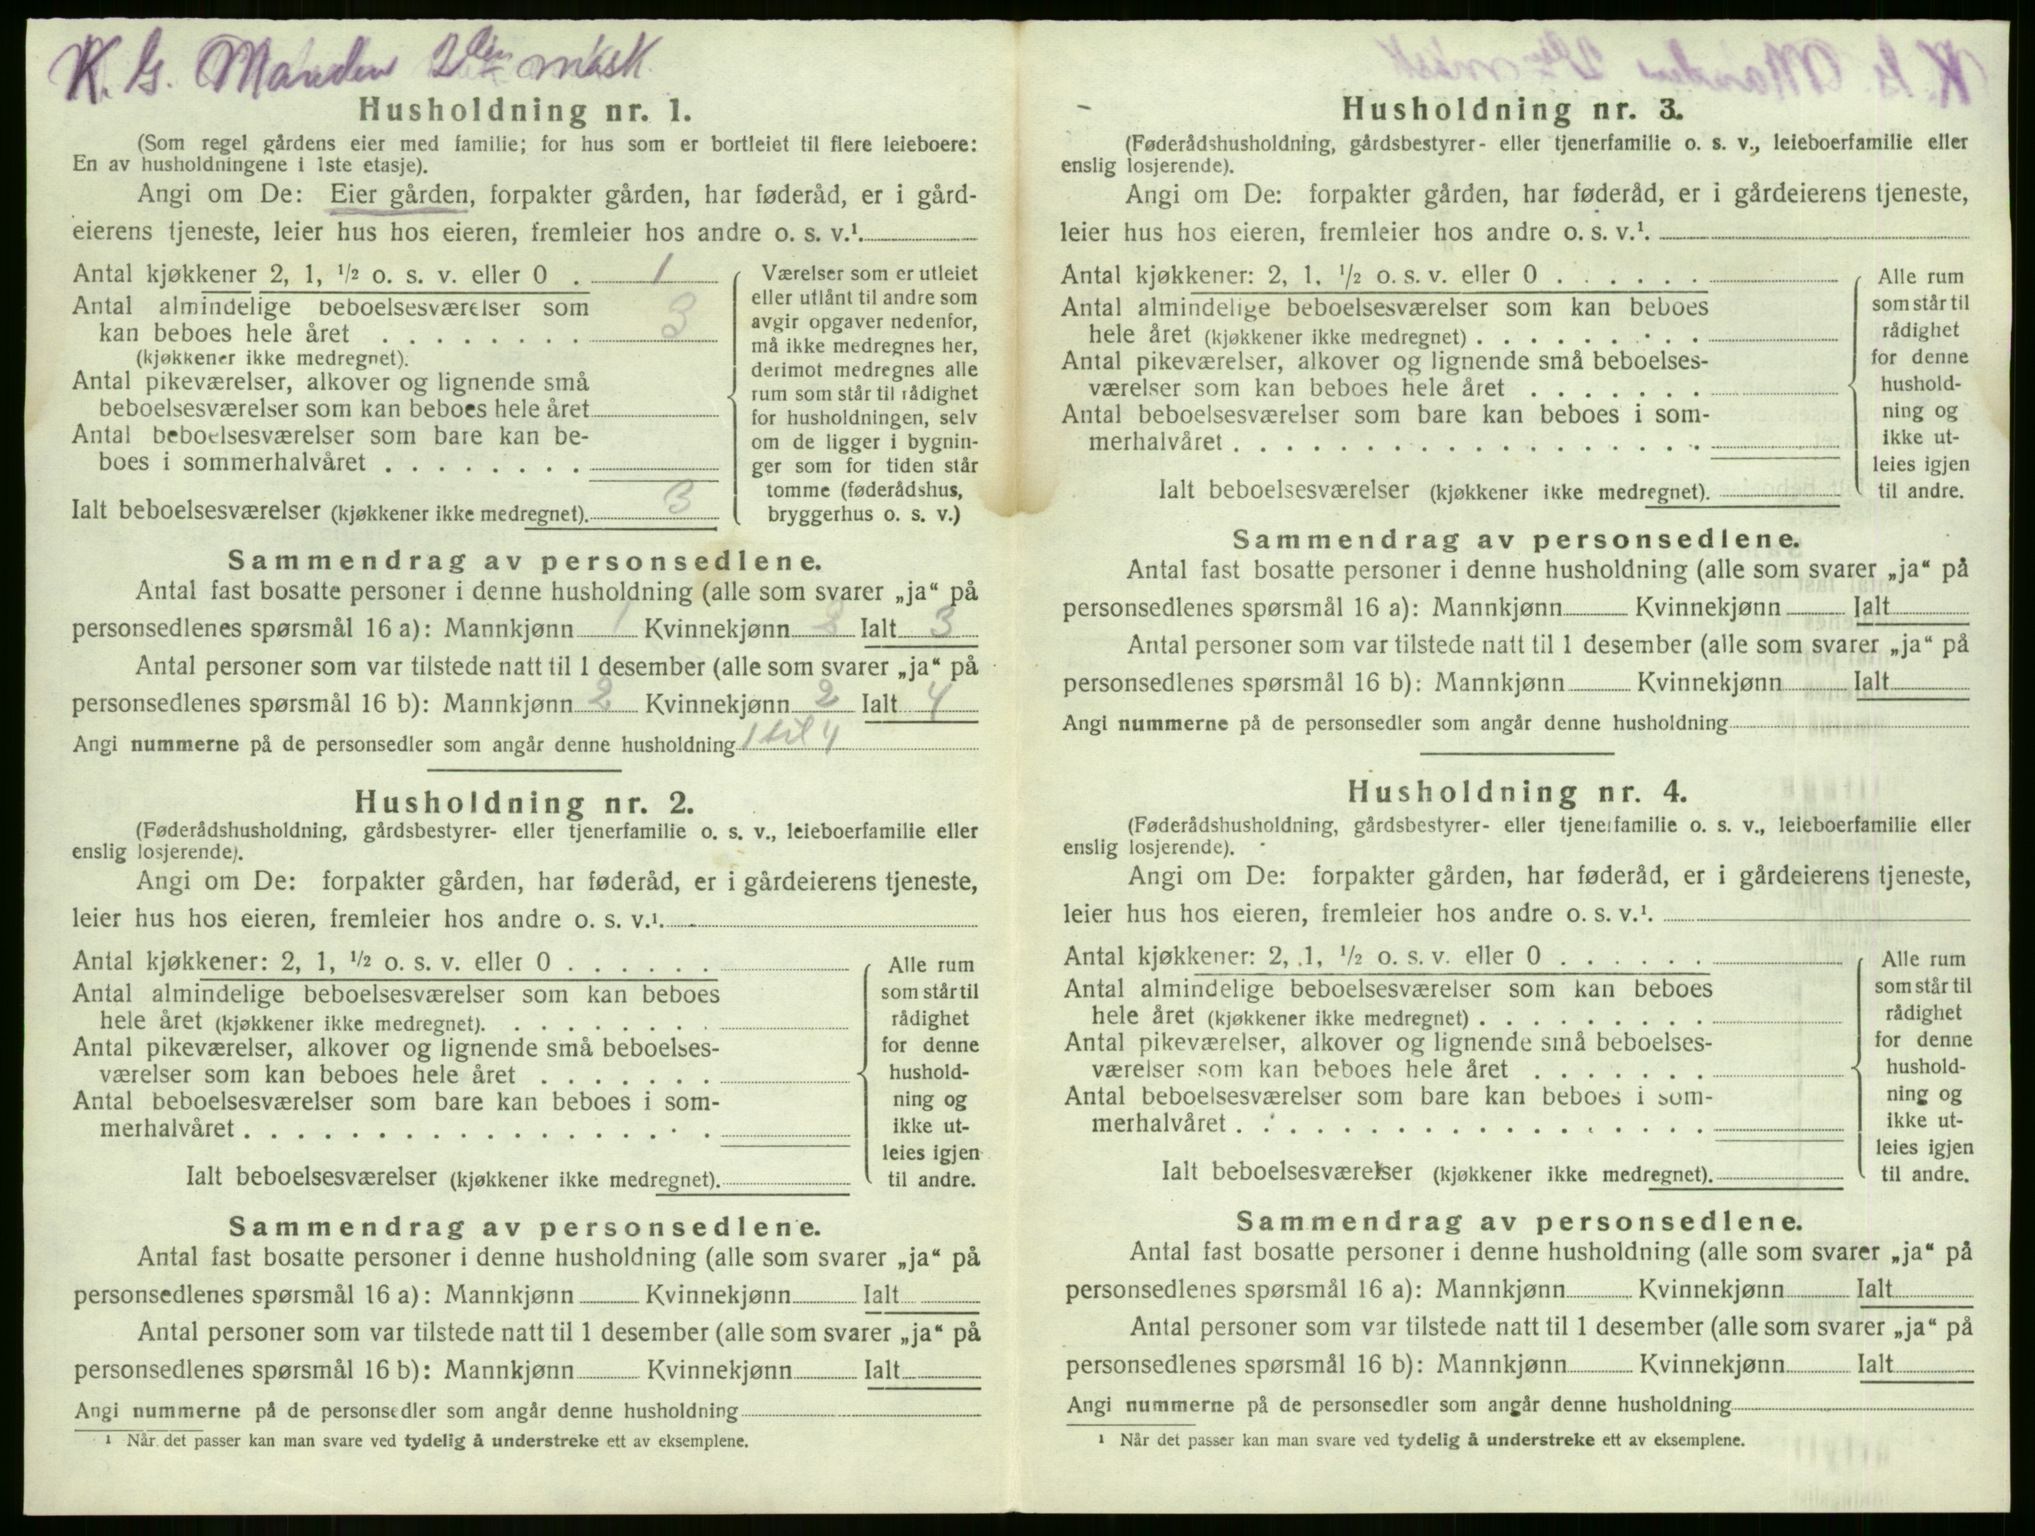 K. G. Manden 2den mask
Husholdning nr. 1.
(Som regel gårdens eier med familie; for hus som er bortleiet til flere leieboere:
En av husholdningene i 1ste etasje).
Angi om De: Eier gården, forpakter gården, har føderåd, er i gård-
eierens tjeneste, leier hus hos eieren, fremleier hos andre o. s. v.¹.
Antal kjøkkener 2, 1, ½ o. s. v. eller 0 . 1
Antal almindelige beboelsesværelser som
kan beboes hele året . . . . . . . . 3
(kjøkkener ikke medregnet).
Antal pikeværelser, alkover og lignende små
beboelsesværelser som kan beboes hele året
Antal beboelsesværelser som bare kan be-
boes i sommerhalvåret . . . . . . . .
Ialt beboelsesværelser (kjøkkener ikke medregnet). 3
Værelser som er utleiet
eller utlånt til andre som
avgir opgaver nedenfor,
må ikke medregnes her,
derimot medregnes alle
rum som står til rådighet
for husholdningen, selv
om de ligger i bygnin-
ger som for tiden står
tomme (føderådshus,
bryggerhus o. s. v.)
Sammendrag av personsedlene.
Antal fast bosatte personer i denne husholdning (alle som svarer „ja“ på
personsedlenes spørsmål 16 a): Mannkjønn 1 Kvinnekjønn 2 Ialt 3
Antal personer som var tilstede natt til 1 desember (alle som svarer „ja“ på
personsedlenes spørsmål 16 b): Mannkjønn 2 Kvinnekjønn 2 Ialt 4
Angi nummerne på de personsedler som angår denne husholdning 1 til 4
Husholdning nr. 2.
(Føderådshusholdning, gårdsbestyrer- eller tjenerfamilie o. s. v., leieboerfamilie eller
enslig losjerende).
Angi om De: forpakter gården, har føderåd, er i gårdeierens tjeneste,
leier hus hos eieren, fremleier hos andre o. s. v.¹.
Antal kjøkkener: 2, 1, ½ o. s. v. eller 0 . . . . . .
Antal almindelige beboelsesværelser som kan beboes
hele året (kjøkkener ikke medregnet). . . . . . . . .
Antal pikeværelser, alkover og lignende små beboelses-
værelser som kan beboes hele året . . . . . . .
Antal beboelsesværelser som bare kan beboes i som-
merhalvåret . . . . . . . . . . . . . . . . . .
Ialt beboelsesværelser (kjøkkener ikke medregnet).
Alle rum
som står til
rådighet
for denne
hushold-
ning og
ikke ut-
leies igjen
til andre.
Sammendrag av personsedlene.
Antal fast bosatte personer i denne husholdning (alle som svarer „ja“ på
personsedlenes spørsmål 16 a): Mannkjønn Kvinnekjønn Ialt
Antal personer som var tilstede natt til 1 desember (alle som svarer „ja“ på
personsedlenes spørsmål 16 b): Mannkjønn Kvinnekjønn Ialt
Angi nummerne på de personsedler som angår denne husholdning
¹ Når det passer kan man svare ved tydelig å understreke ett av eksemplene.
Husholdning nr. 3.
(Føderådshusholdning, gårdsbestyrer- eller tjenerfamilie o. s. v., leieboerfamilie eller
enslig losjerende).
Angi om De: forpakter gården, har føderåd, er i gårdeierens tjeneste,
leier hus hos eieren, fremleier hos andre o. s. v.¹.
Antal kjøkkener: 2, 1, ½ o. s. v. eller 0 . . . . . .
Antal almindelige beboelsesværelser som kan beboes
hele året (kjøkkener ikke medregnet) . . . . . . . . .
Antal pikeværelser, alkover og lignende små beboelses-
værelser som kan beboes hele året . . . . . . .
Antal beboelsesværelser som bare kan beboes i som-
merhalvåret . . . . . . . . . . . . . . . . . .
Ialt beboelsesværelser (kjøkkener ikke medregnet).
Alle rum
som står til
rådighet
for denne
hushold-
ning og
ikke ut-
leies igjen
til andre.
Sammendrag av personsedlene.
Antal fast bosatte personer i denne husholdning (alle som svarer „ja“ på
personsedlenes spørsmål 16 a): Mannkjønn Kvinnekjønn Ialt
Antal personer som var tilstede natt til 1 desember (alle som svarer „ja“ på
personsedlenes spørsmål 16 b): Mannkjønn Kvinnekjønn Ialt
Angi nummerne på de personsedler som angår denne husholdning
Husholdning nr. 4.
(Føderådshusholdning, gårdsbestyrer- eller tjenerfamilie o. s. v., leieboerfamilie eller
enslig losjerende).
Angi om De: forpakter gården, har føderåd, er i gårdeierens tjeneste,
leier hus hos eieren, fremleier hos andre o. s. v.¹.
Antal kjøkkener: 2, 1, ½ o. s. v. eller 0 . . . . . .
Antal almindelige beboelsesværelser som kan beboes
hele året (kjøkkener ikke medregnet) . . . . . . . . .
Antal pikeværelser, alkover og lignende små beboelses-
værelser som kan beboes hele året . . . . . . .
Antal beboelsesværelser som bare kan beboes i som-
merhalvåret . . . . . . . . . . . . . . . . . .
Ialt beboelsesværelser (kjøkkener ikke medregnet).
Alle rum
som står til
rådighet
for denne
hushold-
ning og
ikke ut-
leies igjen
til andre.
Sammendrag av personsedlene.
Antal fast bosatte personer i denne husholdning (alle som svarer „ja“ på
personsedlenes spørsmål 16 a): Mannkjønn Kvinnekjønn Ialt
Antal personer som var tilstede natt til 1 desember (alle som svarer „ja“ på
personsedlenes spørsmål 16 b): Mannkjønn Kvinnekjønn Ialt
Angi nummerne på de personsedler som angår denne husholdning
¹ Når det passer kan man svare ved tydelig å understreke ett av eksemplene.